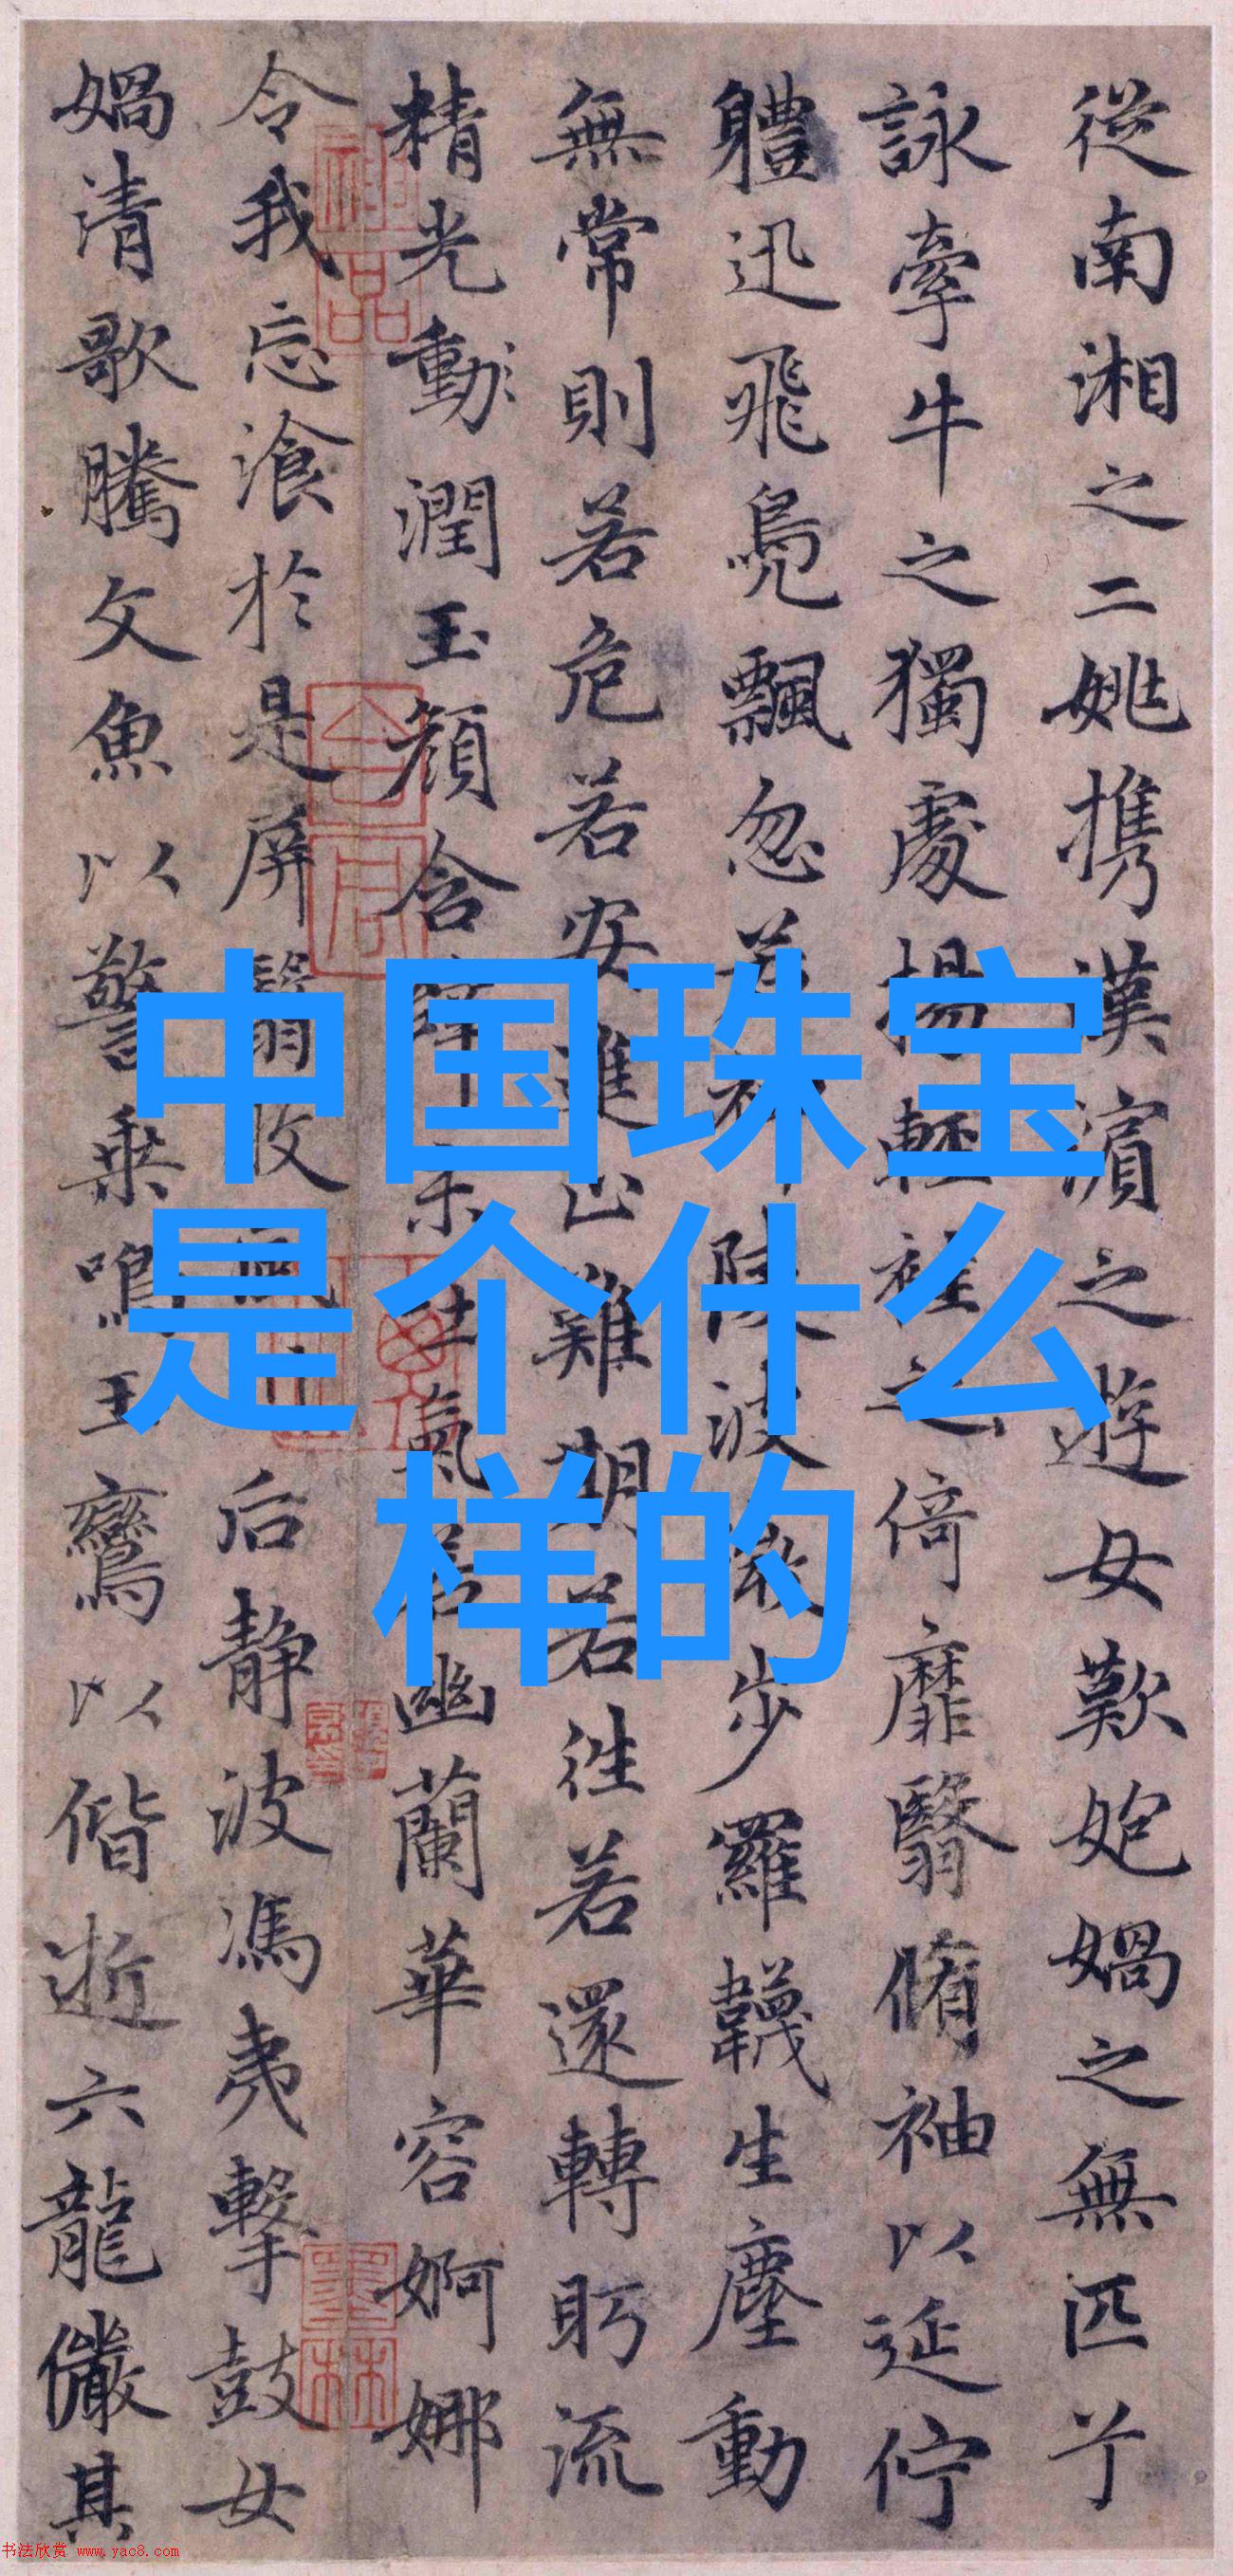 從南湘之二姚携漢濱之遊女歎媧之無匹兮
詠牽牛之獨處揚輕袿之倚靡翳脩袖以延佇
軆迅飛鳧飄忽若神陵波微步羅韈生塵動
無常則若危若安進止難期若往若還轉眄流
精光動潤玉顏含辭未吐氣若幽蘭華容婀娜
令我忘飡於是屏翳收風川后静波馮夷擊鼓女
媧清歌騰文魚以警乗鳴玉鸞以偕逝六龍儼其
中国珠宝
是个什么
样的
神品
墨林
书法欣赏 www.yac8.com